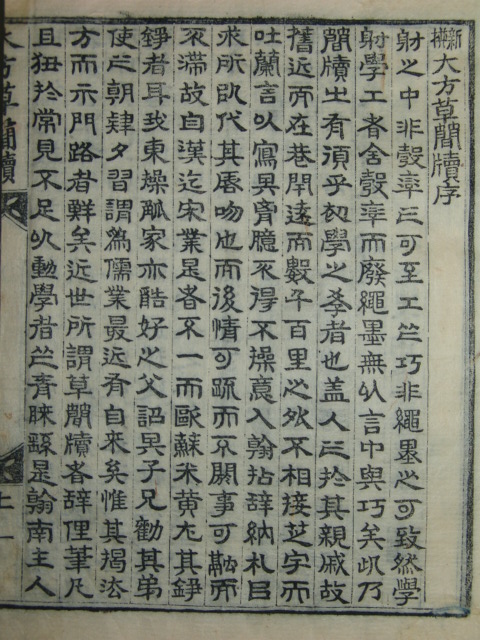 新撰大方草簡牘序
射之中非彀率之可至工之巧非繩墨之可致然學
射學工者舍彀率而廢繩墨無以言中與巧矣此乃
簡牘之有須乎初學之者也盖人之於其親戚故
舊近而在巷閈遠而數千百里之外不相接芝宇而
吐蘭言以寫其胷臆不得不操意入翰拈辭納札㠯
求所以代其唇吻也而後情可疏而不閼事可融而
不滯故自漢迄宋業是者不一而歐蘇米黃尤其錚
錚者耳我東操觚家亦酷好之父詔其子兄勸其弟
使之朝肄夕習謂爲儒業最近者自來矣惟其揭法
方而示門路者鮮矣近世所謂草簡牘者辭俚筆凡
且狃於常見不足以動學者之靑睞繇是翰南主人
大方草簡牘 上 一